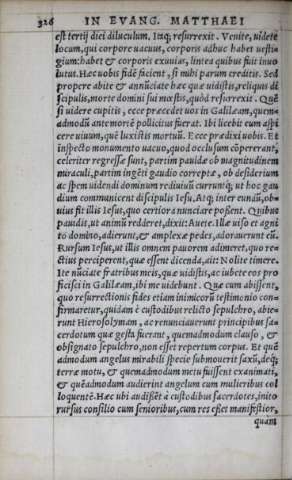 326 IN EVANG. MATTHAEI
est tertij diei diluculum. Itaq; resurrexit. Venite, uidete
locum, qui corpore uacuus, corporis adhuc habet uesti-
gium: habet & corporis exuuias, lintea quibus fuit inuo
lutus. Hæc uobis fidē faciēt, si mihi parum creditis. Sed
propere abite & annūciate hæc quæ uidistis, reliquis di
scipulis, morte domini sui mœstis, quòd resurrexit. Quē
si uidere cupitis, ecce præcedet uos in Galilæam, quem-
admodū ante morē pollicitus fuerat. Ibi licebit eum aspi
cere uiuum, quē luxistis mortuū. Ecce prædixi uobis. Et
inspecto monumento uacuo, quod occlusum cōpererant,
celeriter regressæ sunt, partim pauidæ ob magnitudinem
miraculi, partim ingēti gaudio correptæ, ob desiderium
ac spem uidendi dominum rediuiuū curruntq;, ut hoc gau
dium communicent discipulis Iesu. Atq; inter eundū, ob-
uius fit illis Iesus, quo certiora nunciare possent. Quibus
pauidis, ut animū redderet, dixit: Auete. Illæ uiso et agni
to domino, adierunt, & amplexæ pedes, adorauerunt eū.
Rursum Iesus, ut illis omnem pauorem adimeret, quo re-
ctius perciperent, quæ essent dicenda, ait: Nolite timere.
Ite nūciate fratribus meis, quæ uidistis, ac iubete eos pro
ficisci in Galilæam, ibi me uidebunt. Quæ cum abissent,
quo resurrectionis fides etiam inimicorū testimonio con-
firmaretur, quidam è custodibus relicto sepulchro, abie-
runt Hierosolymam, ac renunciauerunt principibus sa-
cerdotum quæ gesta fuerant, quemadmodum clauso, &
obsignato sepulchro, non esset repertum corpus. Et quē
admodum angelus mirabili specie submouerit saxū, deq;
terræ motu, & quemadmodum metu fuissent exanimati,
& quēadmodum audierint angelum cum mulieribus col
loquentē. Hæc ubi audissēt à custodibus sacerdotes, inito
rursus consilio cum senioribus, cum res esset manifestior,
quàm